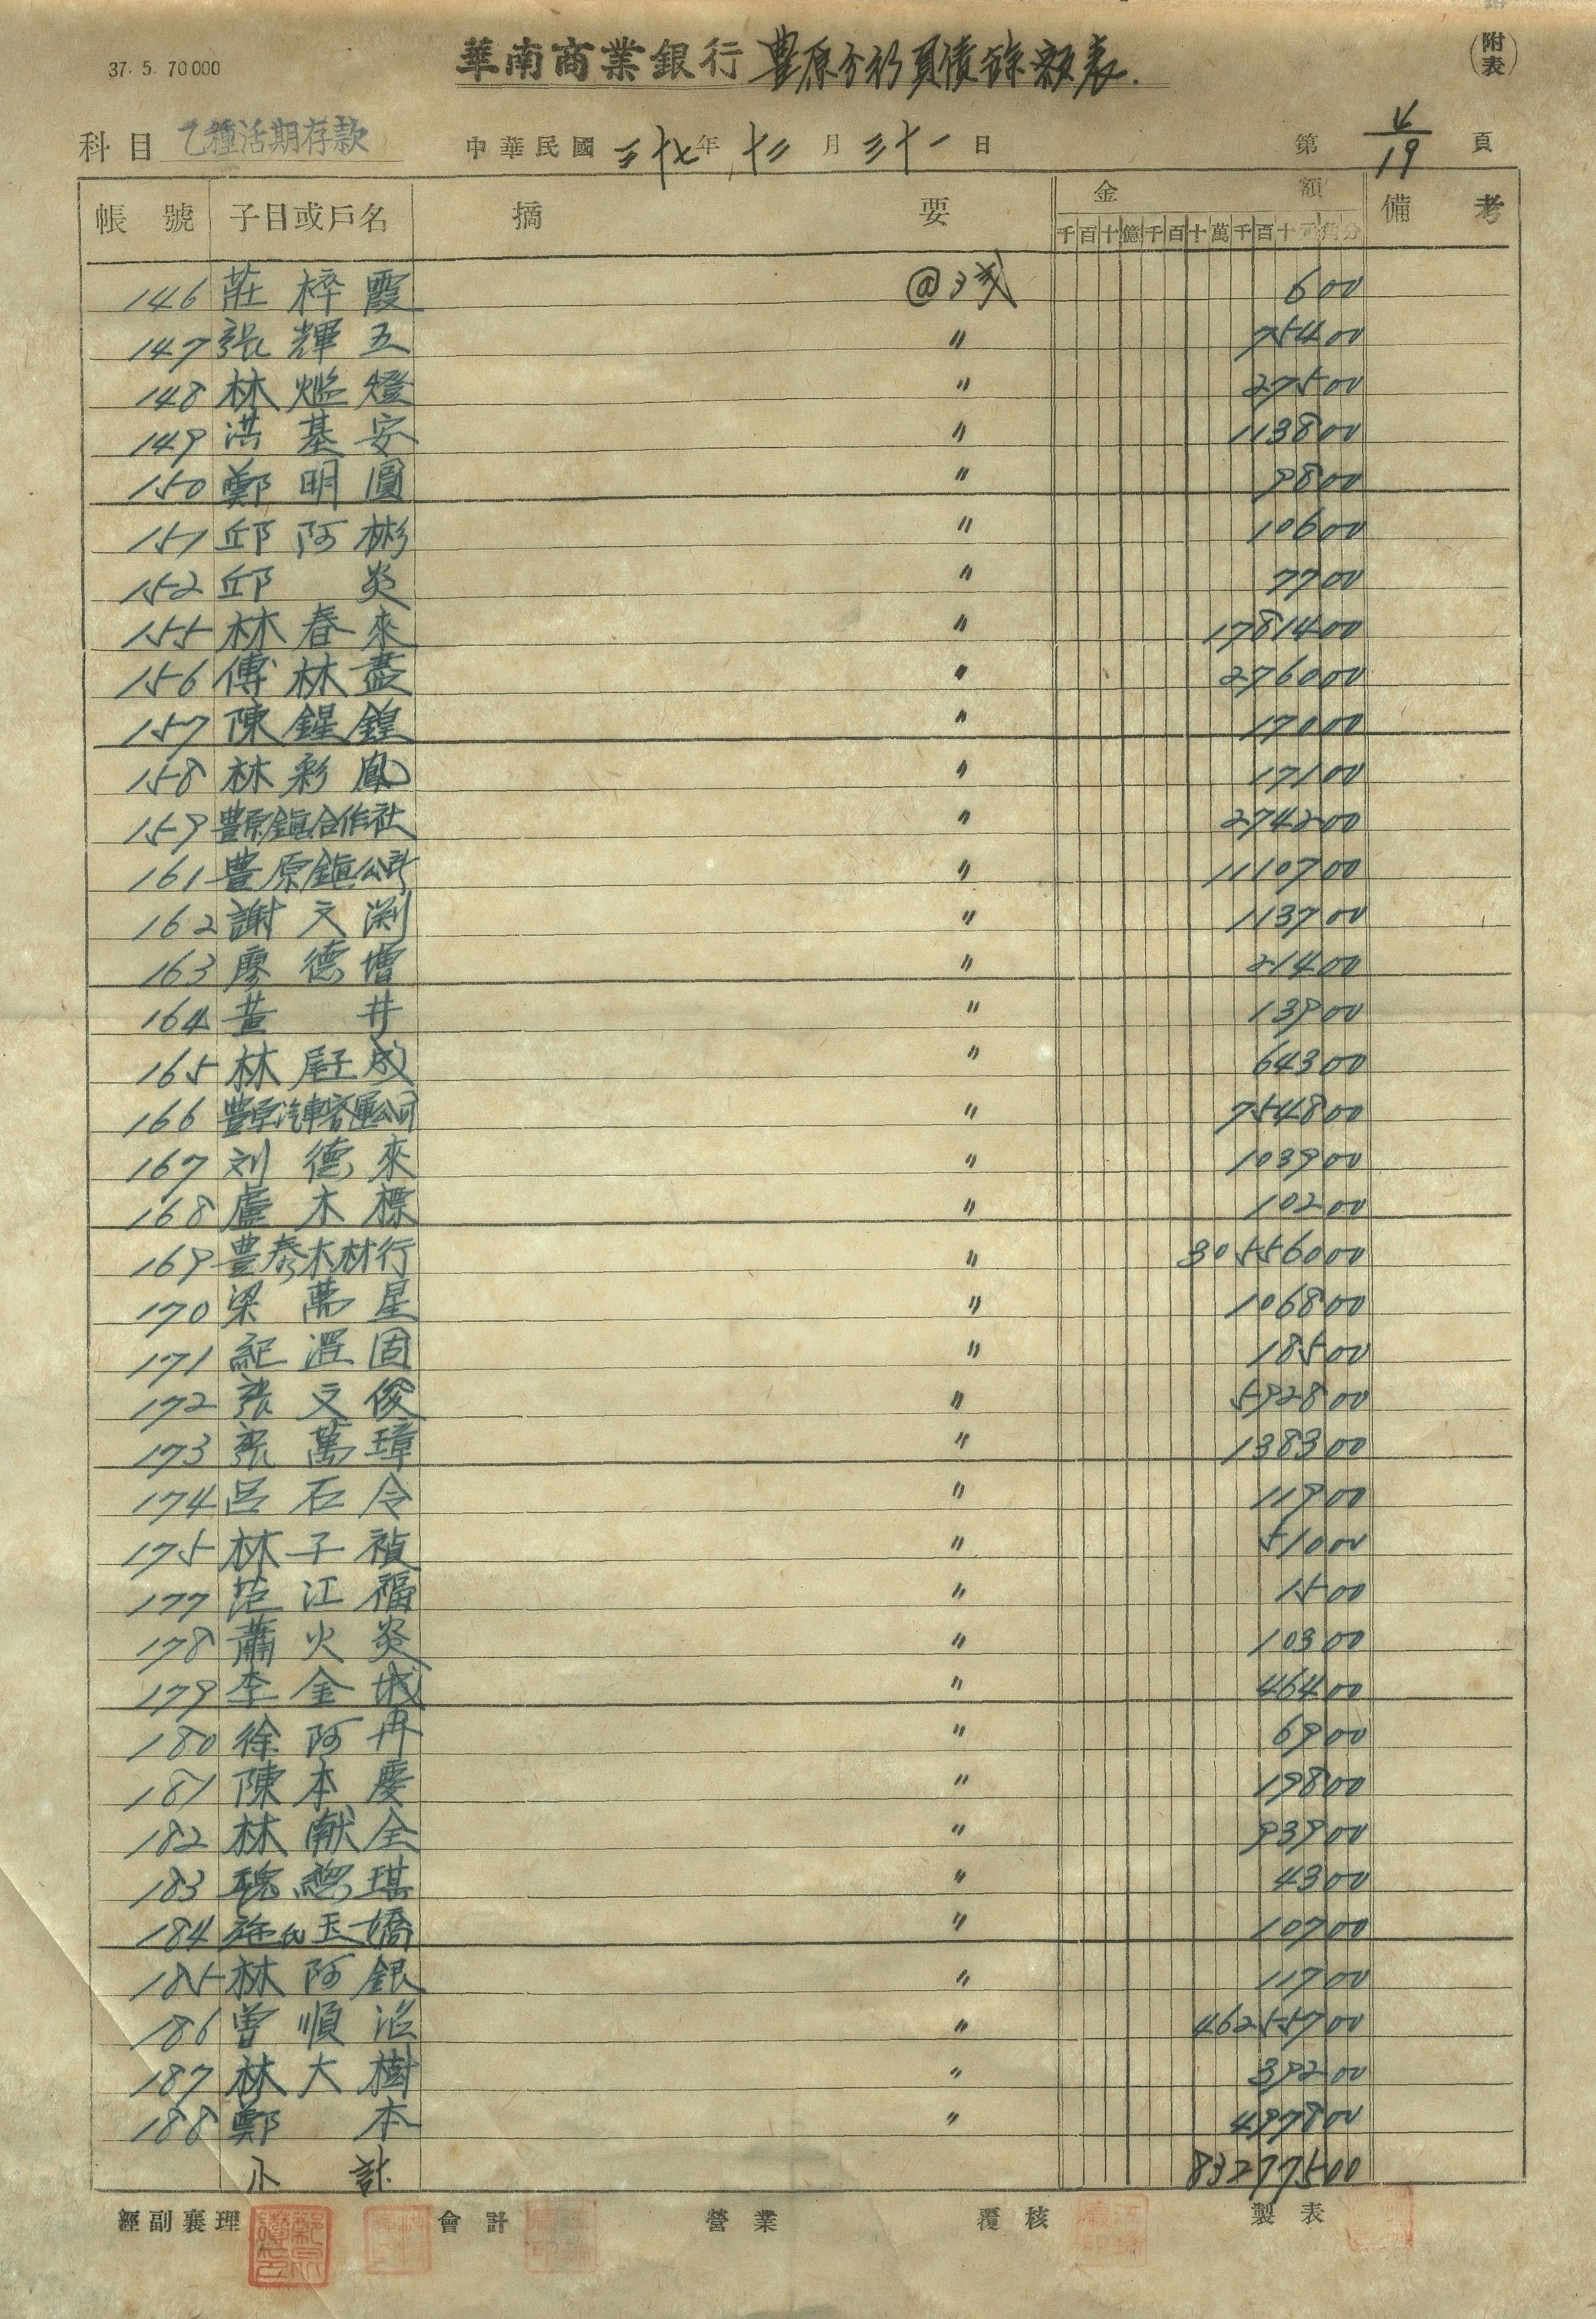 37. 5. 70000
華南商業銀行 豊原分行負債餘額表.
(附表)
科目 乙種活期存款 中華民國三十七年十二月三十一日 第 4/19 頁
帳號 子目或戶名 摘要 金額 備考
千百十億千百十萬千百十元角分
146 莊梓霞 @3分 600
147 張輝五 〃 75400
148 林燃燈 〃 27500
149 洪基安 〃 113800
150 鄭明圓 〃 9800
151 邱阿彬 〃 10600
152 邱炎 〃 7700
155 林春來 〃 1781400
156 傅林盡 〃 276000
157 陳鋥鍠 〃 17000
158 林彩鳳 〃 17100
159 豊原鎮合作社 〃 274200
161 豊原鎮公所 〃 1110700
162 謝文渕 〃 113700
163 廖德增 〃 21400
164 黄井 〃 13900
165 林子成 〃 64300
166 豊原汽車客運公司 〃 754800
167 刘德來 〃 103900
168 盧木標 〃 10200
169 豊泰木材行 〃 30556000
170 梁萬星 〃 106800
171 紀固 〃 18500
172 張文俊 〃 592800
173 張萬璋 〃 138300
174 呂石令 〃 11900
175 林子禎 〃 51000
177 范江福 〃 1500
178 蕭火炎 〃 10300
179 李金城 〃 46400
180 徐阿冉 〃 6900
181 陳本慶 〃 19800
182 林献全 〃 93900
183 魏總琪 〃 4300
184 施氏玉嬌 〃 10700
185 林阿銀 〃 11700
186 曾順治 〃 46255700
187 林大樹 〃 39200
188 鄭本 〃 497800
小計 83277500
經副襄理 會計 營業 覆核 製表